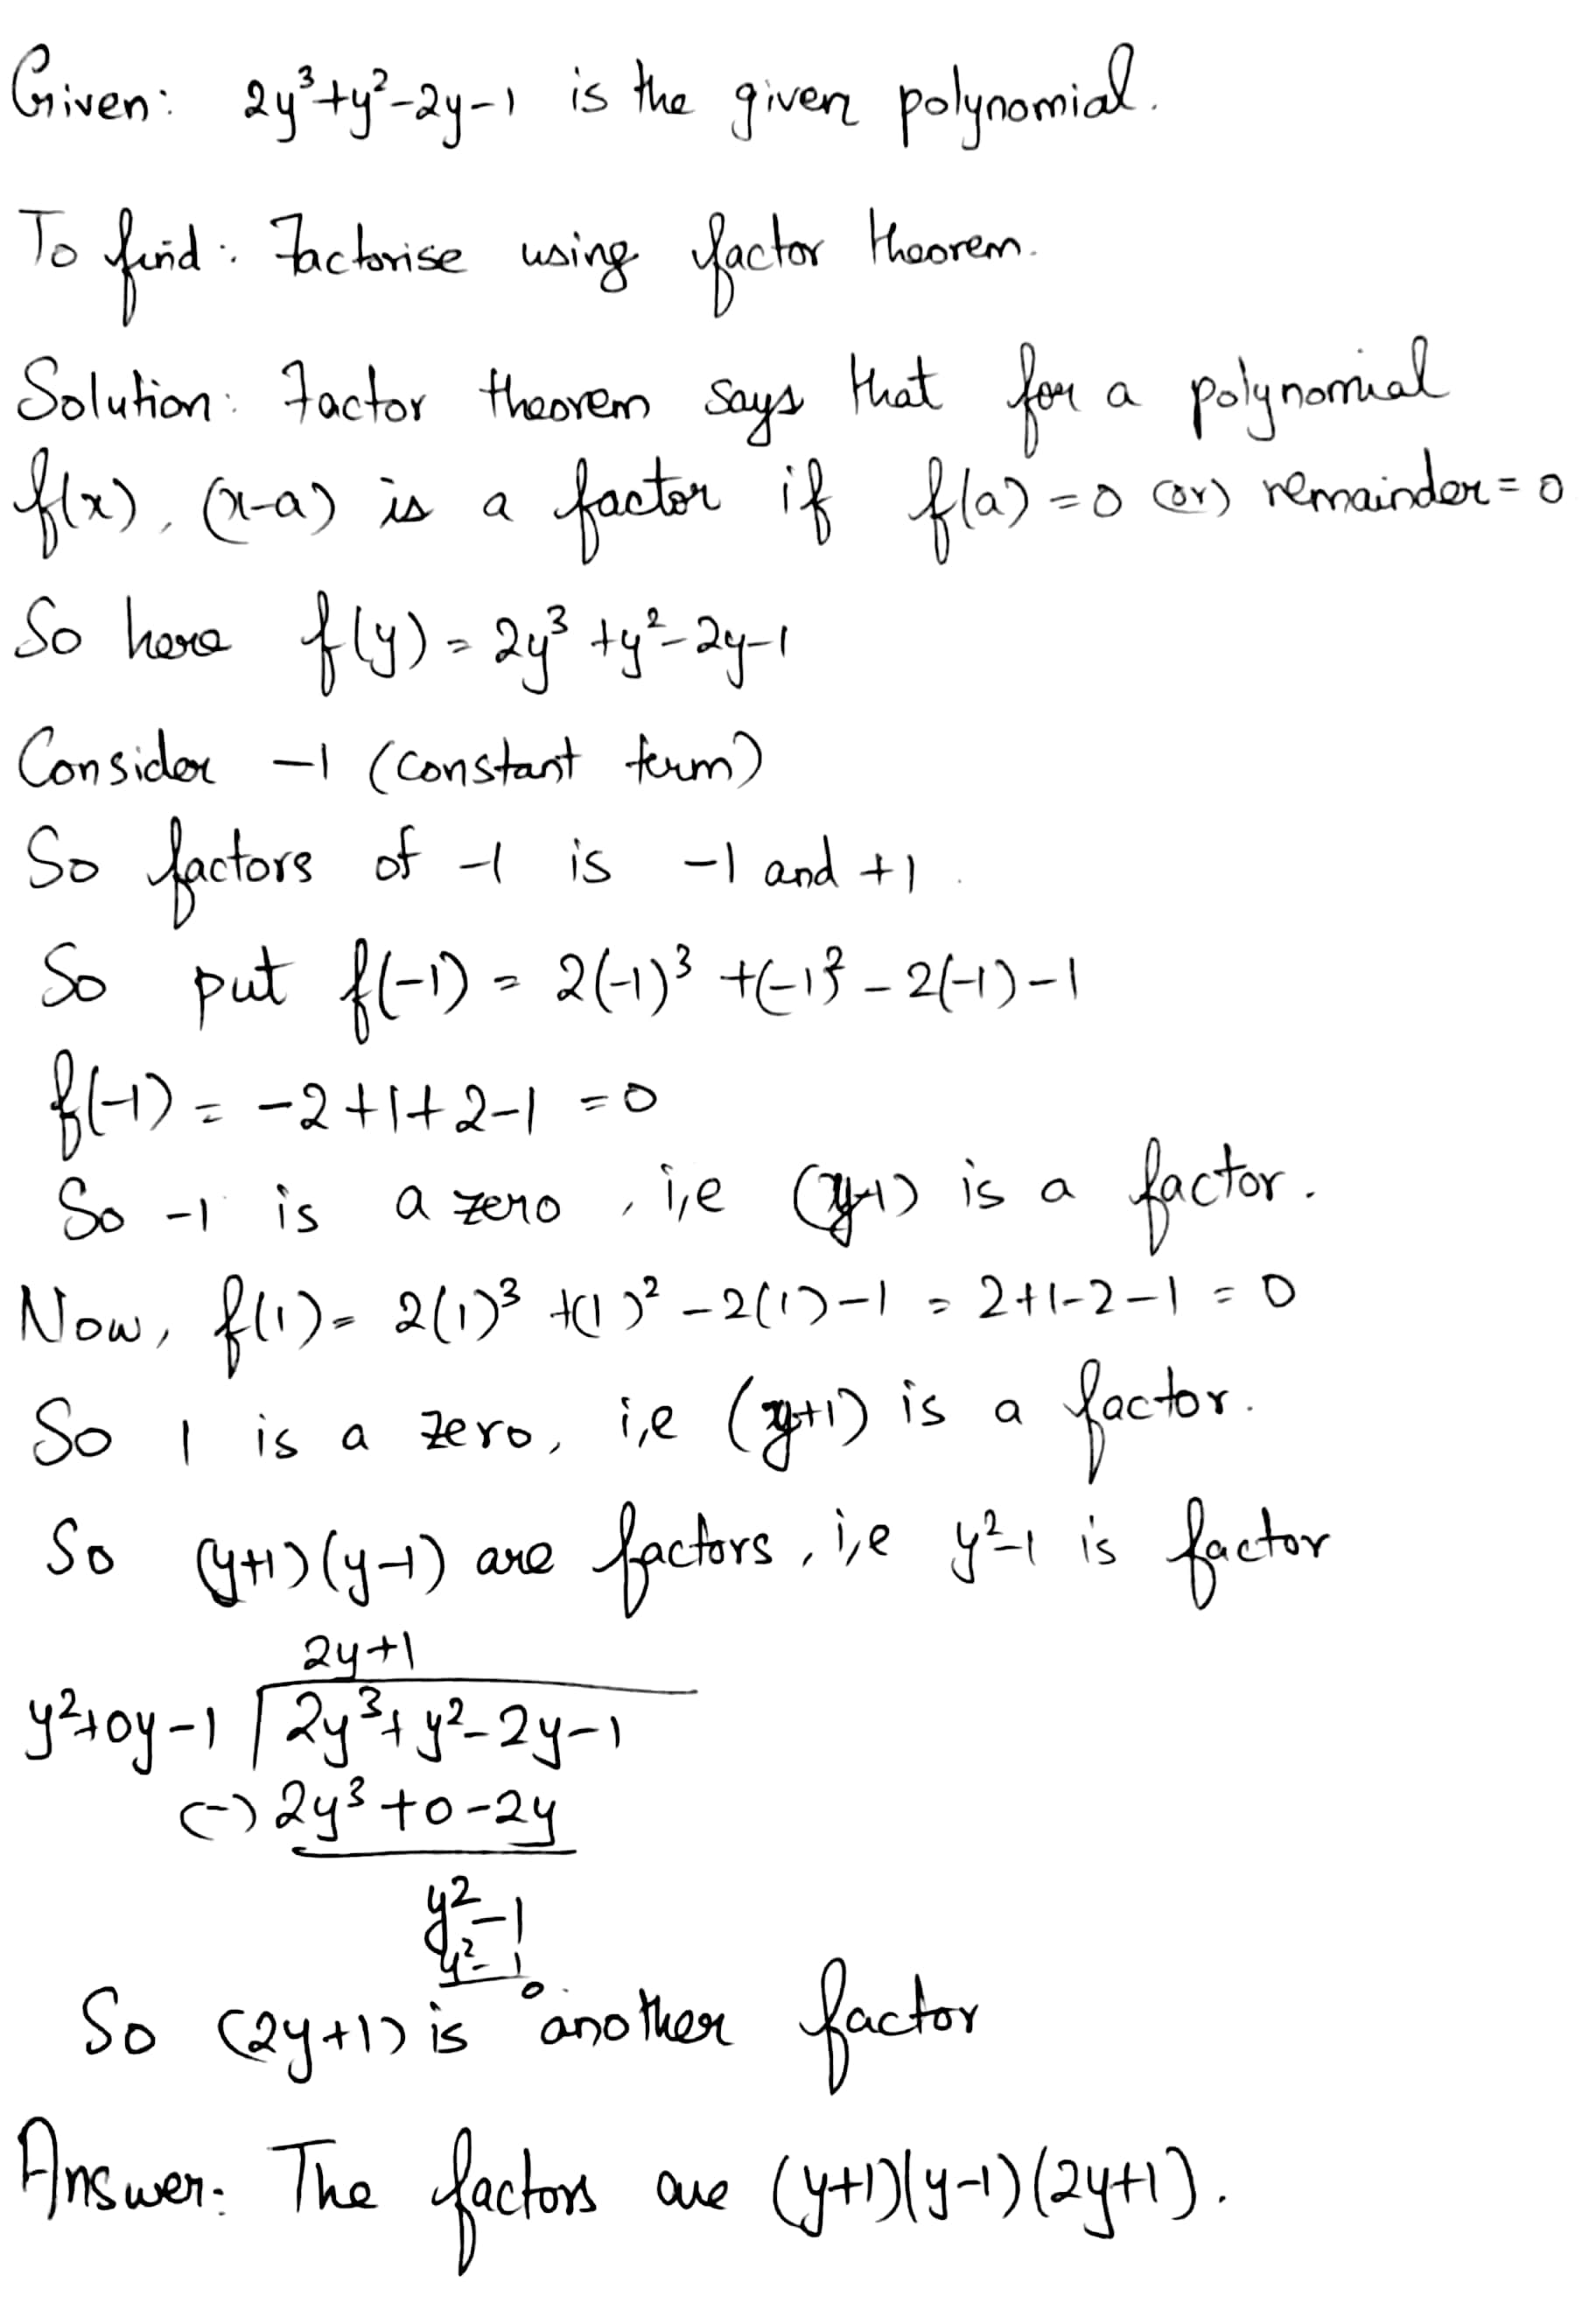 Given: 2y³+y²-2y-1 is the given polynomial.
To find: Factorise using factor theorem.
Solution: Factor theorem says that for a polynomial
f(x), (x-a) is a factor if f(a)=0 (or) remainder=0
So here f(y) = 2y³+y²-2y-1
Consider -1 (constant term)
So factors of -1 is -1 and +1.
So put f(-1) = 2(-1)³+(-1)²-2(-1)-1
f(-1) = -2+1+2-1 =0
So -1 is a zero, i,e (y+1) is a factor.
Now, f(1)= 2(1)³+(1)²-2(1)-1 = 2+1-2-1 = 0
So 1 is a zero, i,e (y+1) is a factor.
So (y+1)(y-1) are factors, i,e y²-1 is factor
2y+1
y²+0y-1 2y³+y²-2y-1
(-) 2y³+0-2y
y²-1
y²-1
0
So (2y+1) is another factor
Answer: The factors are (y+1)(y-1)(2y+1).